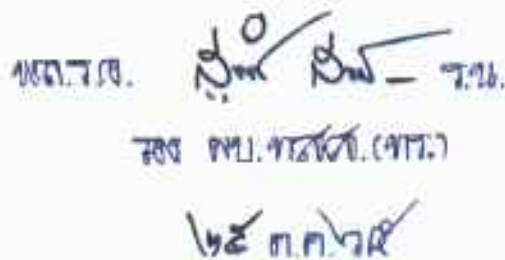 พล.ร.อ. ร.น.
รอง ผบ.ทสส.(ทร.)
๒๕ ต.ค. ๖๕